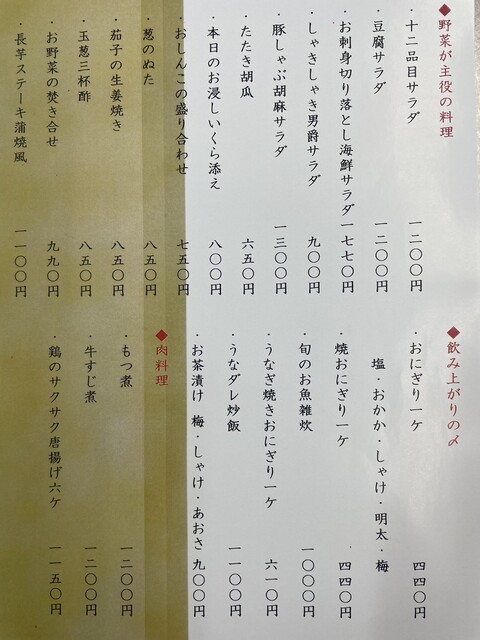 ◆野菜が主役の料理
・十二品目サラダ 一二〇〇円
・豆腐サラダ 一二〇〇円
・お刺身切り落とし海鮮サラダ 一七七〇円
・しゃきしゃき男爵サラダ 九〇〇円
・豚しゃぶ胡麻サラダ 一三〇〇円
・たたき胡瓜 六五〇円
・本日のお浸しいくら添え 八〇〇円
・おしんこの盛り合わせ 七五〇円
・葱のぬた 八五〇円
・茄子の生姜焼き 八五〇円
・玉葱三杯酢 八五〇円
・お野菜の焚き合せ 九九〇円
・長芋ステーキ蒲焼風 一一〇〇円
◆飲み上がりの〆
・おにぎり一ケ 四四〇円
塩・おかか・しゃけ・明太・梅
・焼おにぎり一ケ 四四〇円
・旬のお魚雑炊 一〇〇〇円
・うなぎ焼きおにぎり一ケ 六一〇円
・うなダレ炒飯 一一〇〇円
・お茶漬け 梅・しゃけ・あおさ 九〇〇円
◆肉料理
・もつ煮 一二〇〇円
・牛すじ煮 一二〇〇円
・鶏のサクサク唐揚げ六ケ 一一五〇円